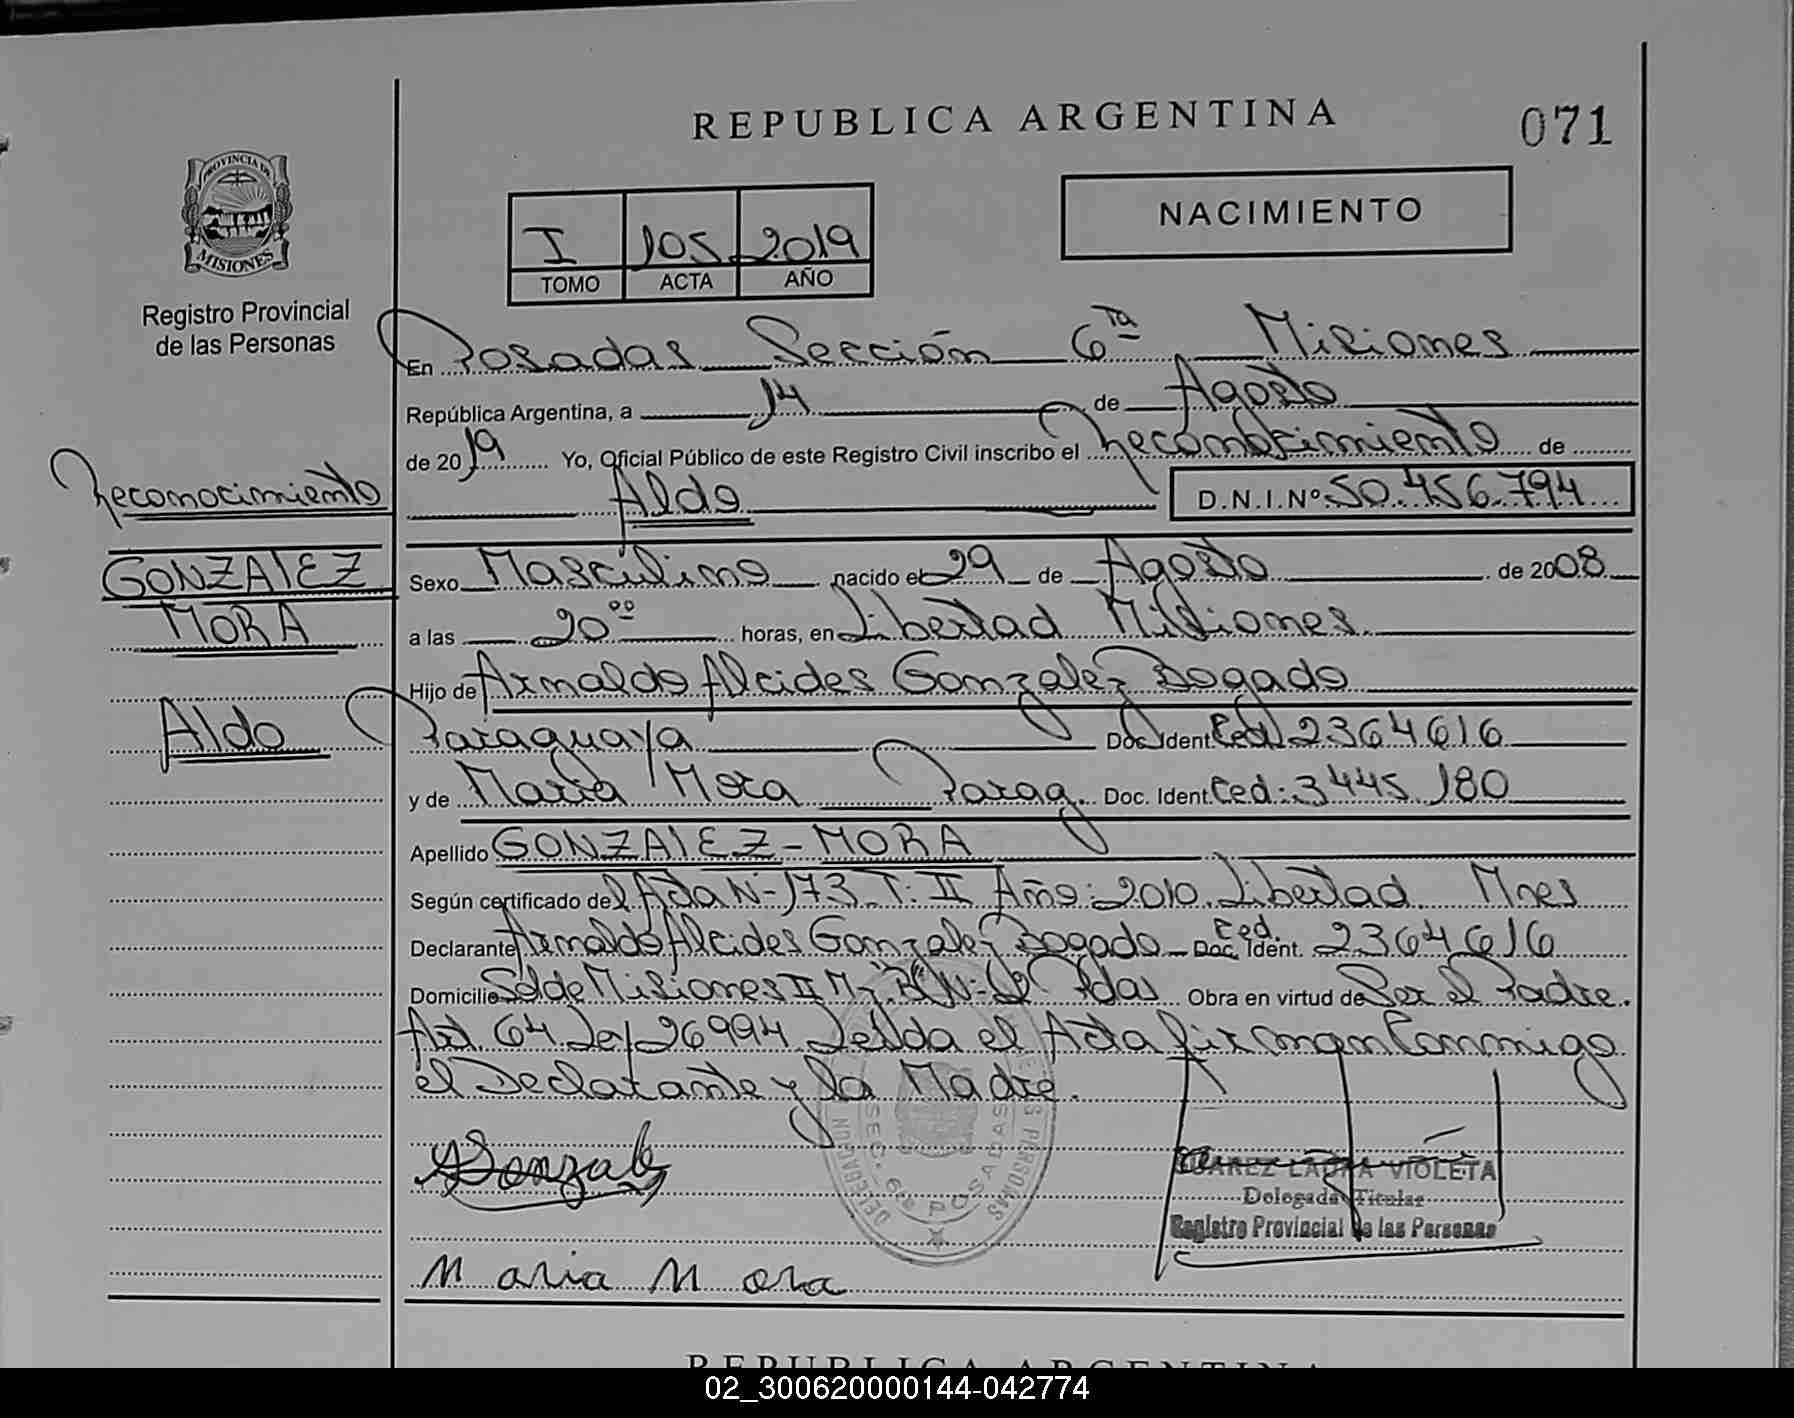 REPUBLICA ARGENTINA
071
PROVINCIA DE
MISIONES
Registro Provincial
de las Personas
I 105 2019
TOMO ACTA AÑO
NACIMIENTO
En Posadas Sección 6ta Misiones
República Argentina, a 14 de Agosto
de 2019 Yo, Oficial Público de este Registro Civil inscribo el Reconocimiento de
Aldo D.N.I.Nº 50.456.794
Reconocimiento
GONZALEZ
MORA
Aldo
Sexo Masculino nacido el 29 de Agosto de 2008
a las 20⁰⁰ horas, en Libertad Misiones.
Hijo de Arnaldo Alcides Gonzalez Bogado
Paraguaya Doc Ident. Ced 2364616
y de Maria Mora Parag. Doc. Ident. Ced: 3445180
Apellido GONZALEZ-MORA
Según certificado del Acta N-173 T: II Año: 2010 Libertad Mnes
Declarante Arnaldo Alcides Gonzalez Bogado Doc. Ident. Ced. 2364616
Domicilio Sol de Misiones II Pdas Obra en virtud de Ser el Padre.
Art. 64 Ley 26994 Leida el Acta firman Conmigo
el Declarante y la Madre.
SEC. 6ta POSADAS
SUAREZ LAURA VIOLETA
Delegada Titular
Registro Provincial de las Personas
Maria Mora
REPUBLICA ARGENTINA
02_300620000144-042774